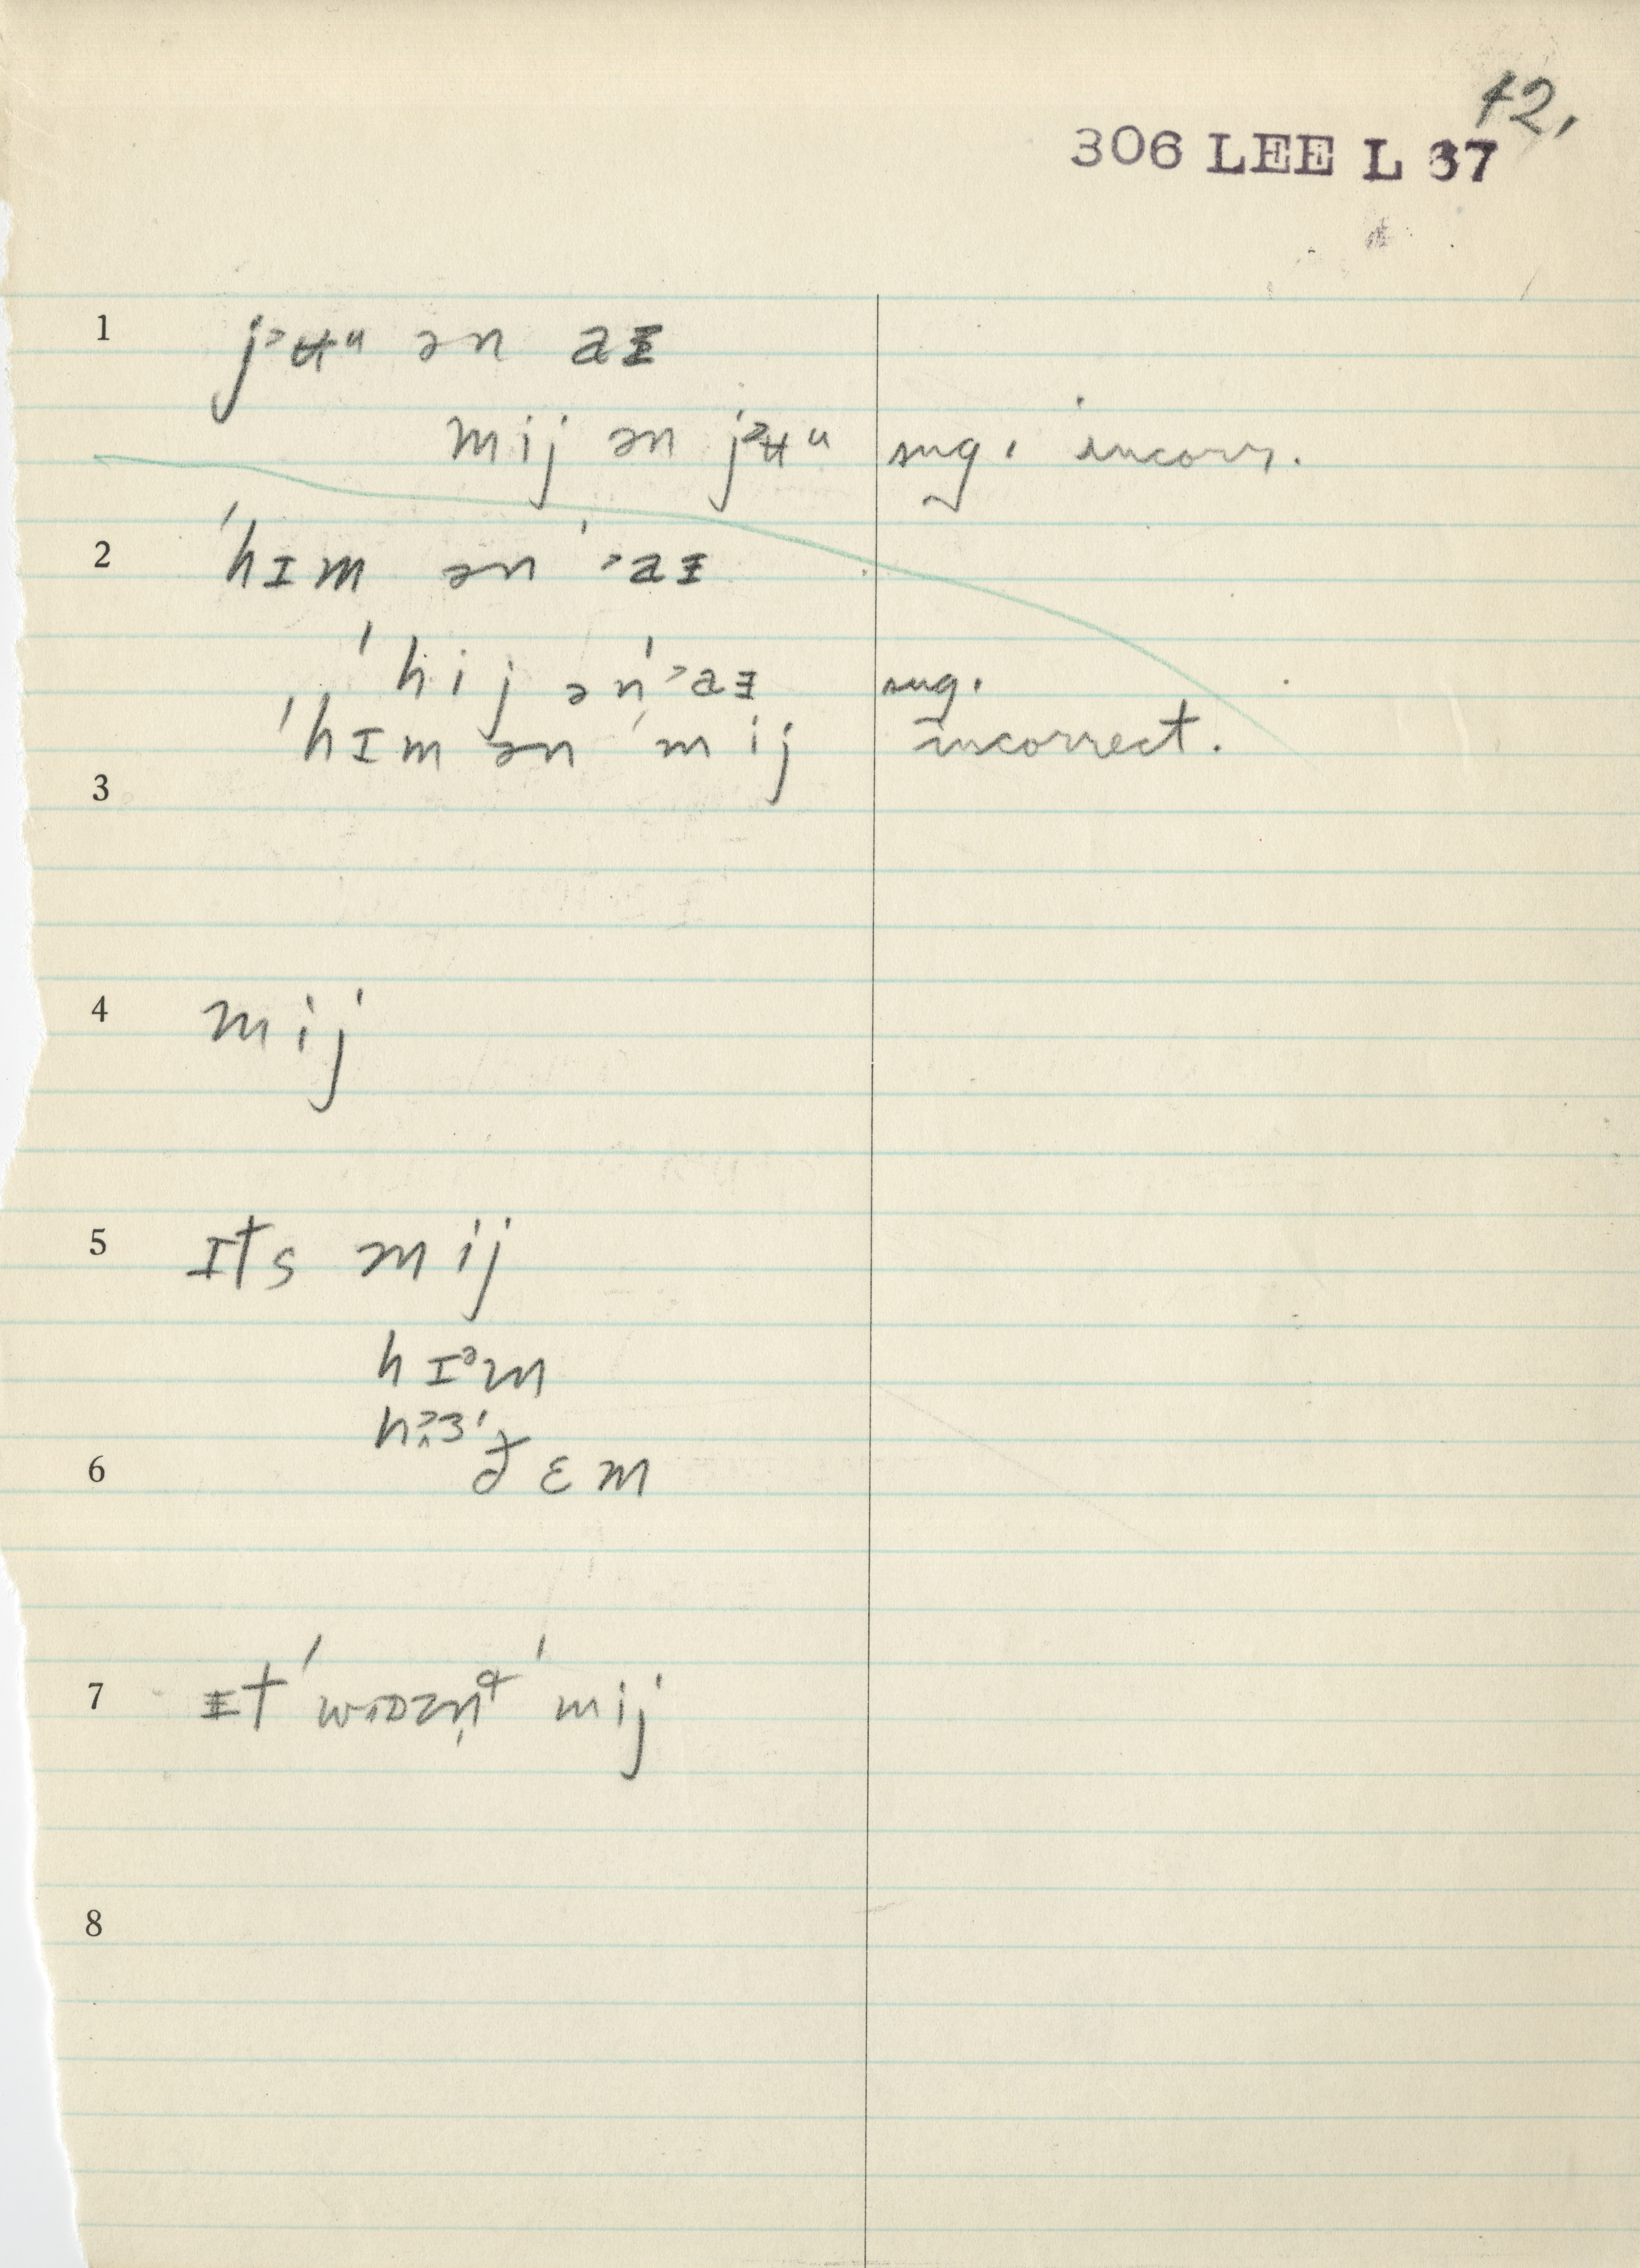 42.
306 LEE L 37
1 j˃ʉᵘ ən aɪ
mij ən j˃ʉᵘ sug. incorr.
2 ˈhɪm ən ˈ˃aɪ
ˈhij ən ˈ˃aɪ sug.
ˈhɪm ən ˈmij incorrect.
3
4 mij
5 ɪts mij
hɪᵊm
6 ðɛm
7 ɪt ˈ ˈmij
8